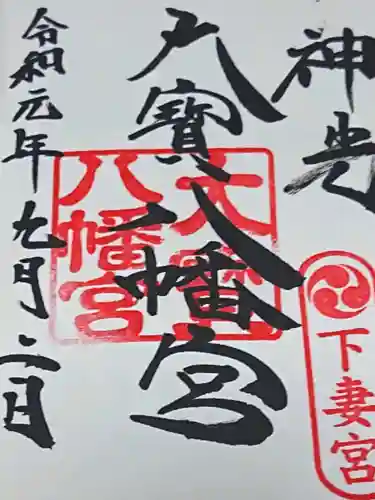 神光
下妻宮
大寶八幡宮
大寶
八幡宮
令和元年九月二日